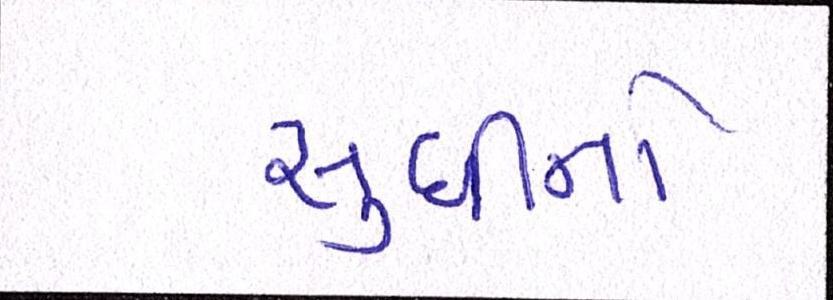 સુધીનો